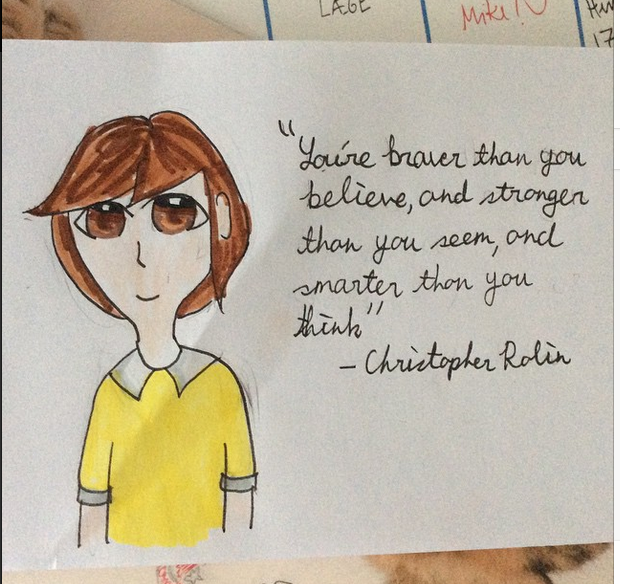 LAGE
17
"You're braver than you
believe, and stronger
than you seem, and
smarter than you
think"
- Christopher Robin